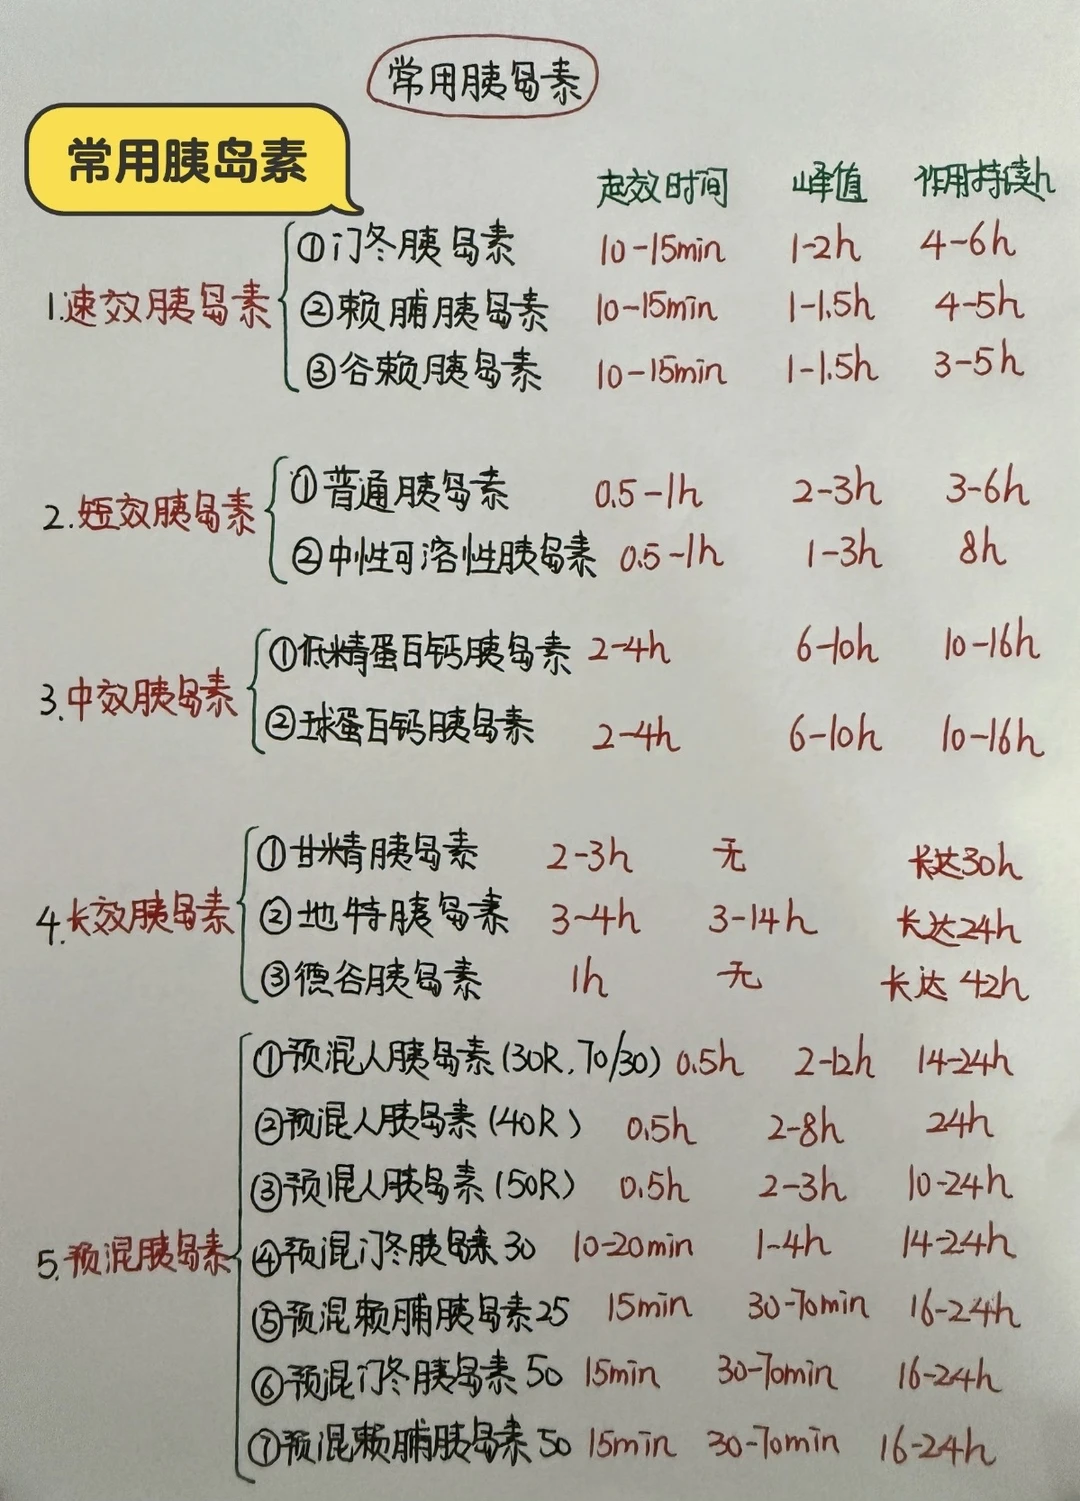 常用胰岛素
常用胰岛素
起效时间 峰值 作用持续h
1.速效胰岛素
①门冬胰岛素 10-15min 1-2h 4-6h
②赖脯胰岛素 10-15min 1-1.5h 4-5h
③谷赖胰岛素 10-15min 1-1.5h 3-5h
2.短效胰岛素
①普通胰岛素 0.5-1h 2-3h 3-6h
②中性可溶性胰岛素 0.5-1h 1-3h 8h
3.中效胰岛素
①低精蛋白钙胰岛素 2-4h 6-10h 10-16h
②球蛋白钙胰岛素 2-4h 6-10h 10-16h
4.长效胰岛素
①甘精胰岛素 2-3h 无 长达30h
②地特胰岛素 3-4h 3-14h 长达24h
③德谷胰岛素 1h 无 长达42h
5.预混胰岛素
①预混人胰岛素(30R,70/30) 0.5h 2-12h 14-24h
②预混人胰岛素(40R) 0.5h 2-8h 24h
③预混人胰岛素(50R) 0.5h 2-3h 10-24h
④预混门冬胰岛素30 10-20min 1-4h 14-24h
⑤预混赖脯胰岛素25 15min 30-70min 16-24h
⑥预混门冬胰岛素50 15min 30-70min 16-24h
⑦预混赖脯胰岛素50 15min 30-70min 16-24h